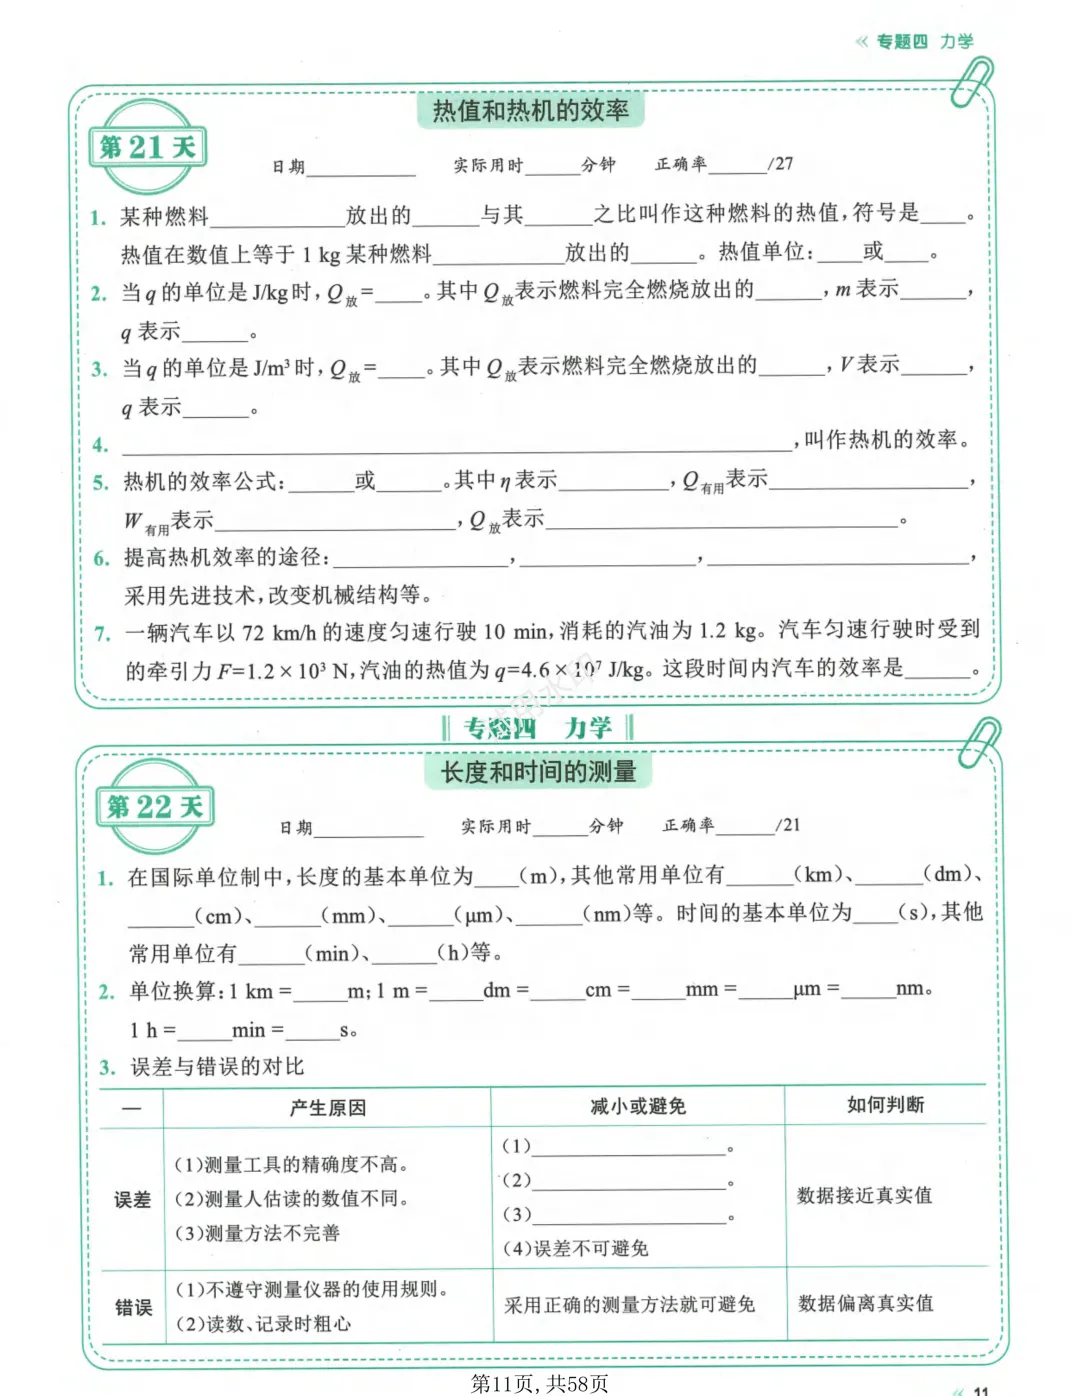 « 专题四 力学
热值和热机的效率
第21天
日期__________ 实际用时_____分钟 正确率_____/27
1. 某种燃料____________放出的______与其______之比叫作这种燃料的热值,符号是____。
热值在数值上等于 1 kg 某种燃料____________放出的______。热值单位:____或____。
2. 当 q 的单位是 J/kg时,Q放=____。其中 Q放表示燃料完全燃烧放出的______,m 表示______,
q 表示______。
3. 当 q 的单位是 J/m³ 时,Q放=____。其中 Q放表示燃料完全燃烧放出的______,V 表示______,
q 表示______。
4. ____________________________________________________________,叫作热机的效率。
5. 热机的效率公式:______或______。其中 η 表示__________,Q有用表示__________________,
W有用表示______________________,Q放表示________________________________。
6. 提高热机效率的途径:________________,________________,________________________,
采用先进技术,改变机械结构等。
7. 一辆汽车以 72 km/h 的速度匀速行驶 10 min,消耗的汽油为 1.2 kg。汽车匀速行驶时受到
的牵引力 F=1.2×10³ N,汽油的热值为 q=4.6×10⁷ J/kg。这段时间内汽车的效率是______。
试用水印
专题四 力学
长度和时间的测量
第22天
日期__________ 实际用时_____分钟 正确率_____/21
1. 在国际单位制中,长度的基本单位为____(m),其他常用单位有______(km)、______(dm)、
______(cm)、______(mm)、______(μm)、______(nm)等。时间的基本单位为____(s),其他
常用单位有______(min)、______(h)等。
2. 单位换算:1 km =_____m; 1 m =_____dm =_____cm =_____mm =_____μm =_____nm。
1 h =_____min =_____s。
3. 误差与错误的对比
— 产生原因 减小或避免 如何判断
误差
(1)测量工具的精确度不高。
(2)测量人估读的数值不同。
(3)测量方法不完善
(1)__________________。
(2)__________________。
(3)__________________。
(4)误差不可避免
数据接近真实值
错误
(1)不遵守测量仪器的使用规则。
(2)读数、记录时粗心
采用正确的测量方法就可避免
数据偏离真实值
« 11
第11页,共58页